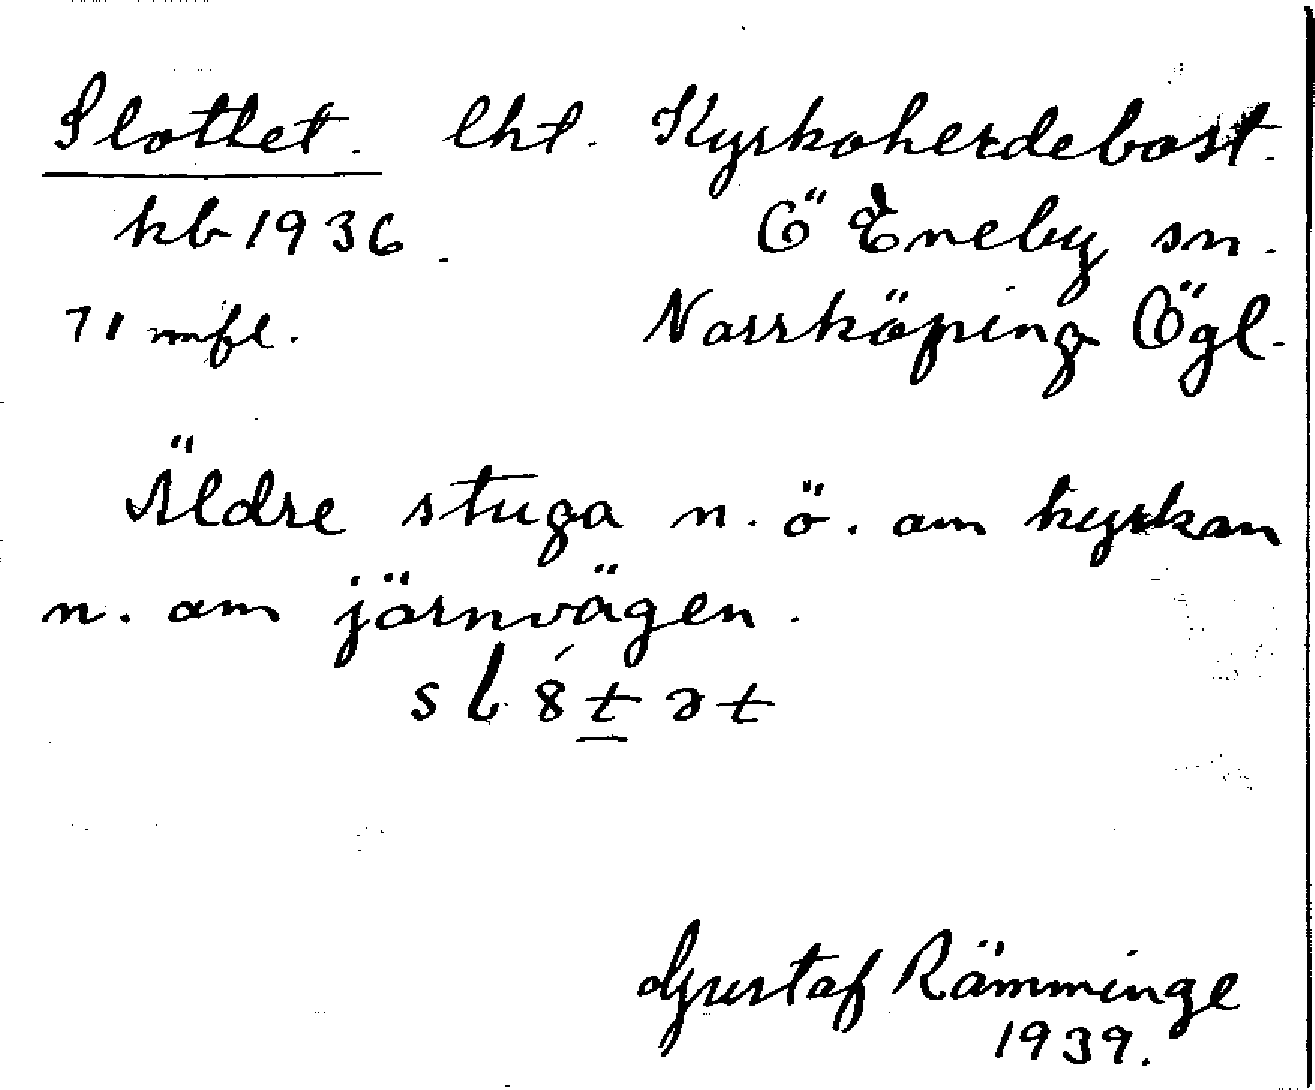 Slottet. lht. Kyrkoherdebost.
kb 1936. Ö Eneby sn.
71 mfl. Norrköping Ögl.
Äldre stuga n. ö. om kyrkan
n. om järnvägen.
slɞ́t̲ət
Gustaf Rämminge
1939.